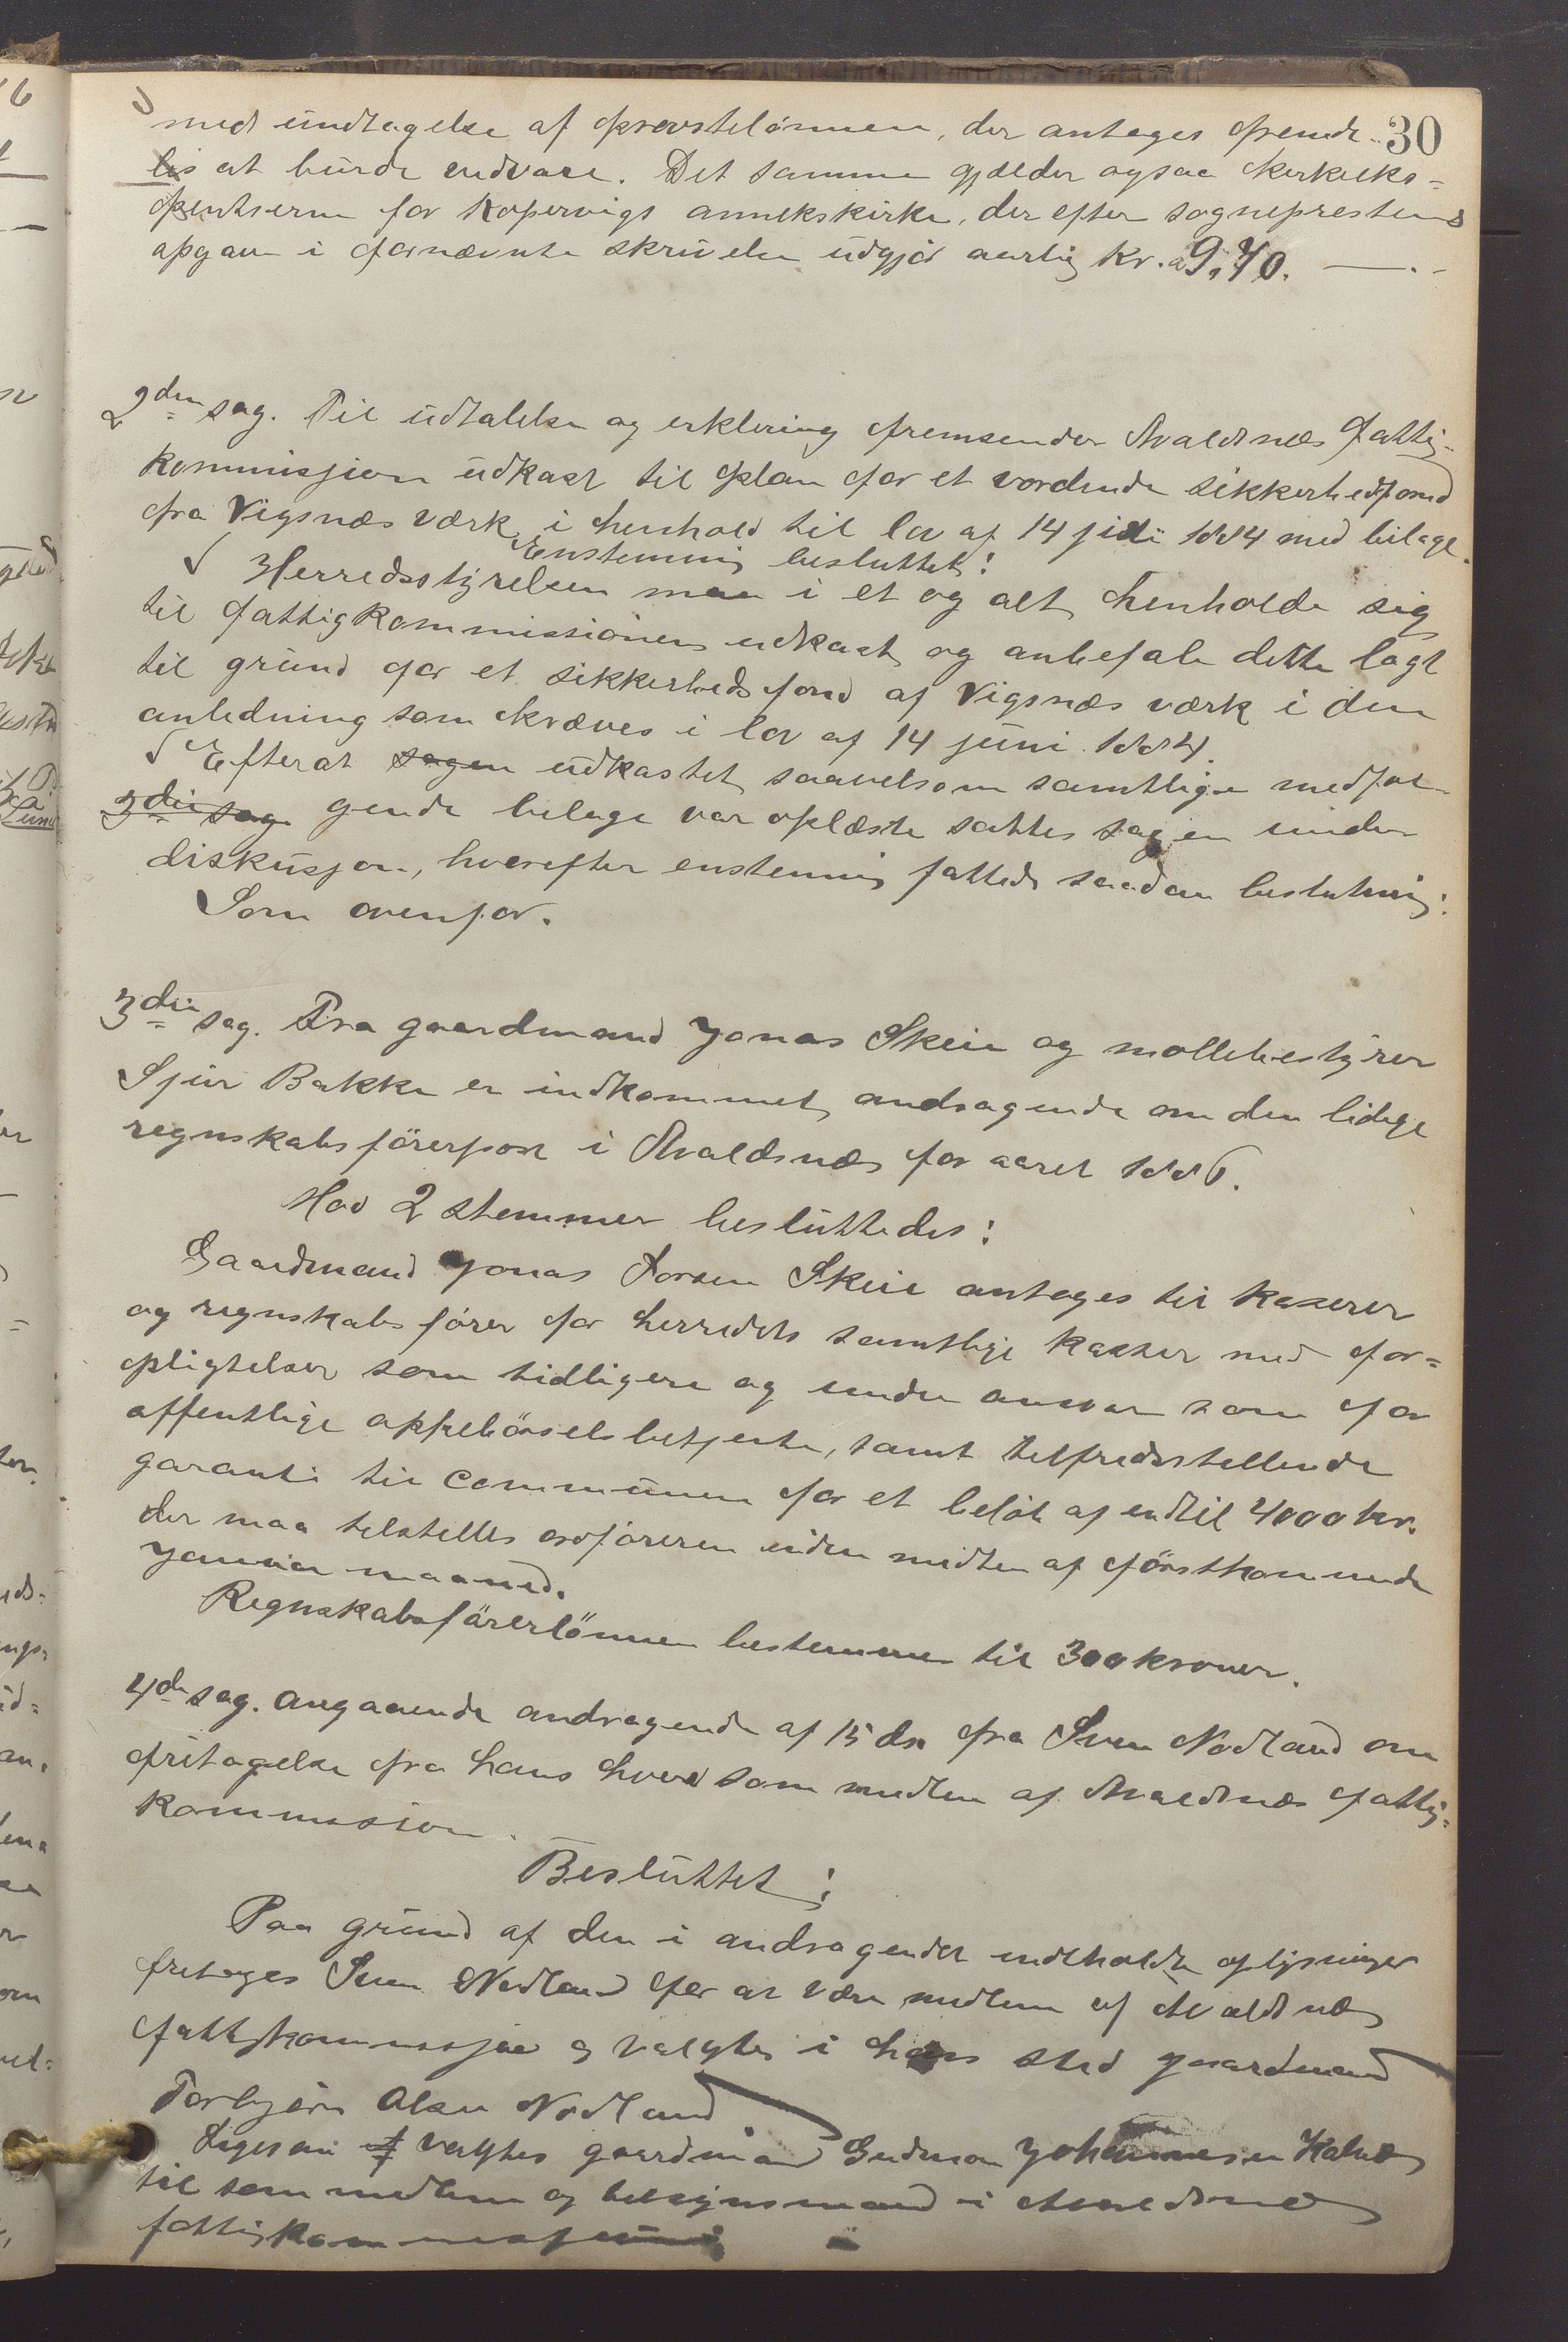 30
med undtagelse af provstelönnen, der antages fremde-
les at burde vedvare. Det samme gjælder ogsaa kirkeeks-
pentserne for Kopervigs annekskirke, der efter sogneprestens
opgave i fornævnte skrivelse udgjör aarlig Kr. 9,70.
2den sag. Til udtalelse og erklering fremsender Avaldsnæs fattig-
kommisjion udkast til plan for et vordende sikkerhedsfond
fra Vigsnæs værk i henhold til lov af 14 juli 1884 med bilage.
Enstemmig besluttet:
Herredsstyrelsen maa i et og alt henholde sig
til fattigkommissionens udkast og anbefale dette lagt
til grund for et sikkerheds fond af Vigsnæs værk i den
anledning som kræves i lov af 14 juni 1884.
Efterat sagen udkastet saavelsom samtlige medföl-
3die sag gende bilage var oplæste sattes sagen under
diskusjon, hvorefter enstemmig fattedes saadan beslutning:
Som ovenfor.
3die sag. Fra gaardmand Jonas Skeie og möllebestyrer
Sjur Bakke er indkommet andragende om den ledige
regnskabsförerpost i Avaldsnæs for aaret 1886.
Mod 2 stemmer besluttedes:
Gaardmand Jonas Torsen Skeie antages til kaserer
og regnskabsförer for herredets samtlige kasser med for-
pligtelser som tidligere og under ansvar som for
offentlige oppebörselsbetjente, samt tilfredsstillende
garanti til Communen for et belöb af indtil 4000 kr.
der maa tilstilles ordföreren inden midten af förstkommende
Januar maaned.
Regnskabsförerlönnen bestemmes til 300 kroner.
4de sag. Angaaende andragende af 15 ds. fra Sven Nodland om
fritagelse fra hans hverv som medlem af Avaldsnæs fattig-
kommission.
Besluttet:
Paa grund af den i andragendet indeholdte oplysninger
fritages Sven Nodland for at være medlem af Avaldsnæs
fattigkommissjon og valgtes i hans sted gaardmand
Torbjörn Olsen Nodland.
Ligesom valgtes gaardmand Gudmon Johannesen Kalnæs
til som medlem og tilsynsmand i Avaldsnæs
fattigkommissjon